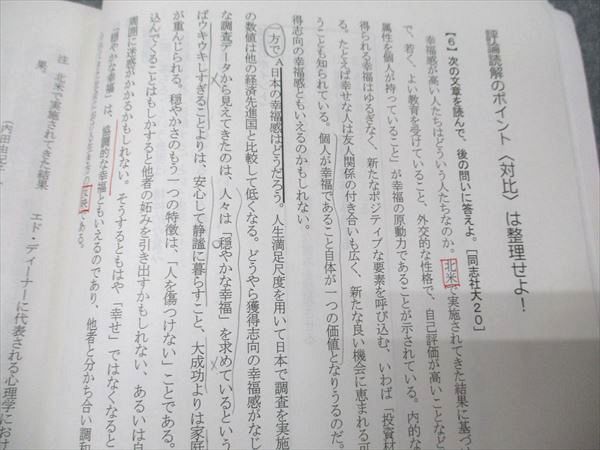 評論読解のポイント〈対比〉は整理せよ!
【6】次の文章を読んで、後の問いに答えよ。[同志社大20]
幸福感が高い人たちはどういう人たちなのか。北米で実施されてきた結果に基づ
で、若く、よい教育を受けていること、外交的な性格で、自己評価が高いことなど
属性を個人が持っていること」が幸福の原動力であることが示されている。内的な
得られる幸福はゆるぎなく、新たなポジティブな要素を呼び込む、いわば「投資材
る。たとえば幸せな人は友人関係の付き合いも広く、新たな良い機会に恵まれる可
ことも知られている。個人が幸福であること自体が一つの価値となりうるのだ。
得志向の幸福感ともいえるのかもしれない。
一方でA日本の幸福感はどうだろう。人生満足尺度を用いて日本で調査を実施
の数値は他の経済先進国と比較して低くなる。どうやら獲得志向の幸福感がなじ
な調査データから見えてきたのは、人々は「穏やかな幸福」を求めているという
ばウキウキしすぎることよりは、安心して静謐に暮らすこと、大成功よりは家庭
が重んじられる。穏やかさのもう一つの特徴は、「人を傷つけない」ことである。
込んでくることはもしかすると他者の妬みを引き出すかもしれない、あるいは自
周囲に迷惑がかかるかもしれない。そうするともはや「幸せ」ではなくなると
「穏やかな幸福」は、協調的な幸福ともいえるのであり、他者と分かち合い調和
である。
注 北米で実施されてきた結果 エド・ディーナーに代表される心理学におけ
果。
(内田由紀子